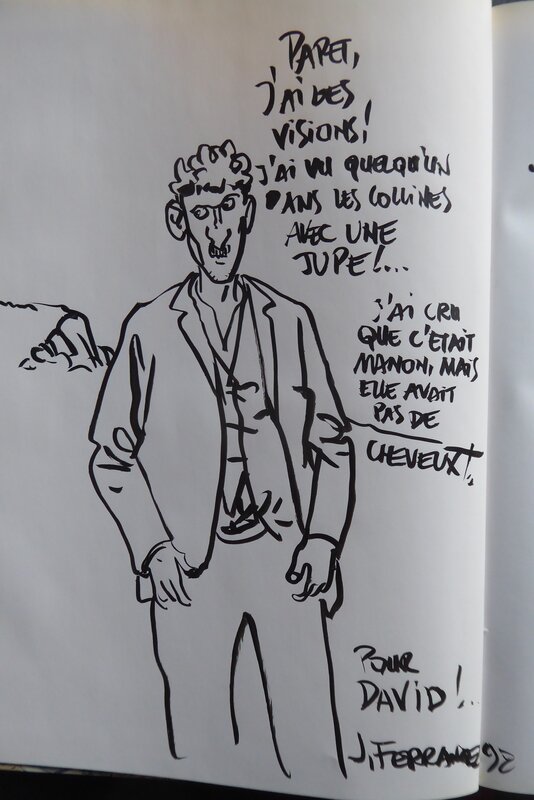 PAPET,
J'AI DES
VISIONS!
J'AI VU QUELQU'UN
DANS LES COLLINES
AVEC UNE
JUPE!...
J'AI CRU
QUE C'ETAIT
MANON, MAIS
ELLE AVAIT
PAS DE
CHEVEUX!..
POUR
DAVID!..
J. FERRANDEZ